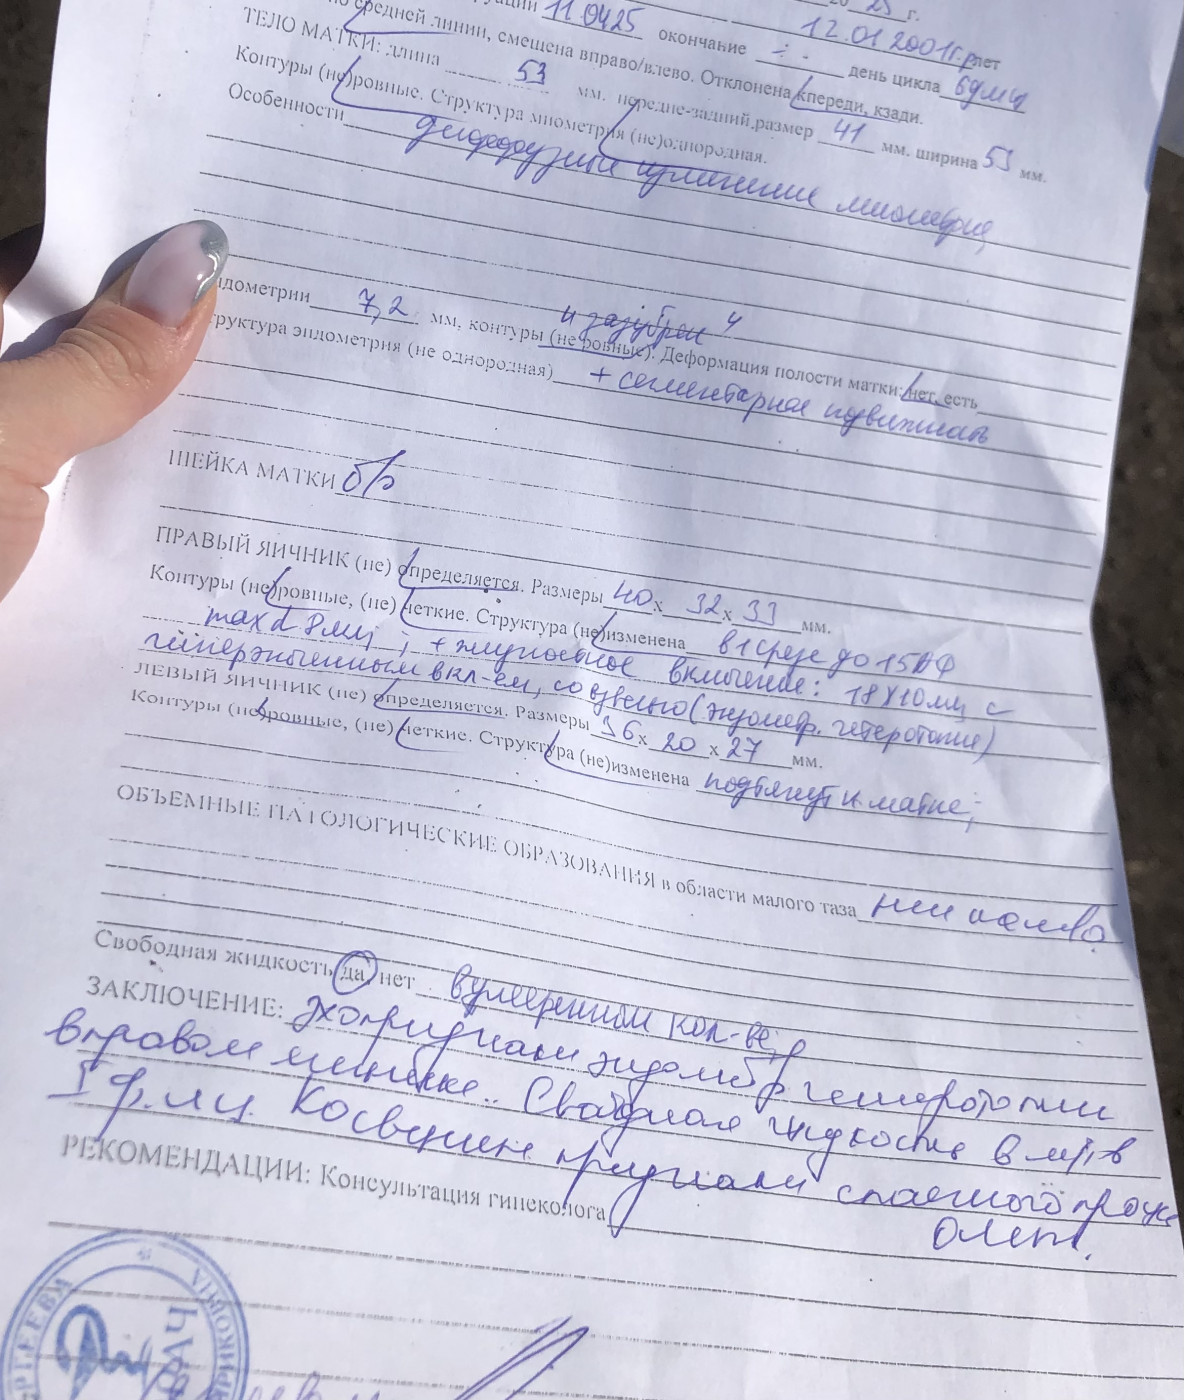 20 25 г.
11.04.25 окончание день цикла 6 д.м.ц
12.01.2001г.р. лет
средней линии, смещена вправо/влево. Отклонена кпереди, кзади.
ТЕЛО МАТКИ: длина 53 мм. передне-задний размер 41 мм. ширина 53 мм.
Контуры (не)ровные. Структура миометрия (не)однородная.
Особенности диффузные изменения миометрия
ндометрии 7,2 мм, контуры (не ровные). Деформация полости матки: нет, есть
и зазубрен ч
труктура эндометрия (не однородная) + сегментарная подвижность
ШЕЙКА МАТКИ б/о
ПРАВЫЙ ЯИЧНИК (не) определяется. Размеры 40 х 32 х 33 мм.
Контуры (не)ровные, (не) четкие. Структура (не)изменена в 1 срезе до 15 АФ
max d 8мм; + жидкостное включение: 18х10мм с
гиперэхогенным вкл-ем, со взвесью (эндометр. гетеротопия)
ЛЕВЫЙ ЯИЧНИК (не) определяется. Размеры 36 х 20 х 27 мм.
Контуры (не)ровные, (не) четкие. Структура (не)изменена подтянут к матке;
ОБЪЕМНЫЕ ПАТОЛОГИЧЕСКИЕ ОБРАЗОВАНИЯ в области малого таза
Свободная жидкость да, нет в умеренном кол-ве
ЗАКЛЮЧЕНИЕ: Эхопризнаки эндометр гетеротопии
в правом яичнике. Свободная жидкость в м/т в
I ф.м.ц. Косвенные признаки спаечного проц
РЕКОМЕНДАЦИИ: Консультация гинеколога
ОМТ.